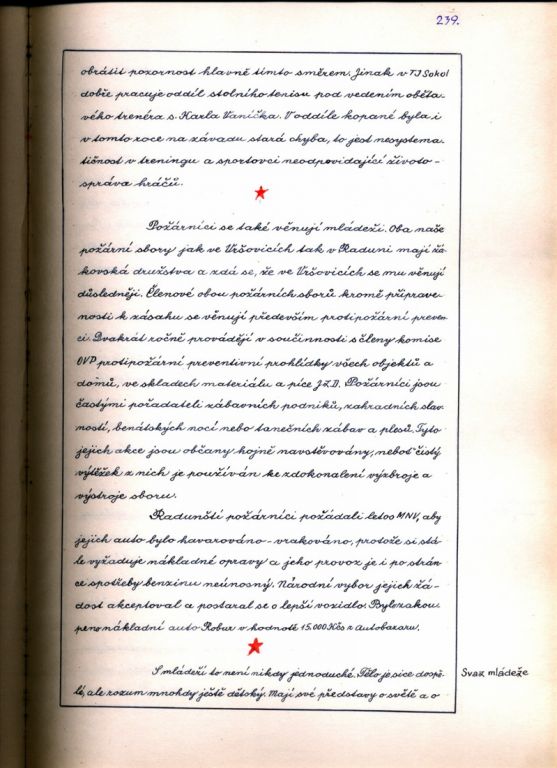 239.
obrátit pozornost hlavně tímto směrem. Jinak v TJ Sokol
dobře pracuje oddíl stolního tenisu pod vedením oběta-
vého trenéra s. Karla Vaníčka. V oddíle kopané byla i
v tomto roce na závadu stará chyba, to jest nesystema-
tičnost v treningu a sportovci neodpovídající životo-
správa hráčů.
Požárníci se také věnují mládeži. Oba naše
požární sbory jak ve Vršovicích tak v Raduni mají žá-
kovská družstva a zdá se, že ve Vršovicích se mu věnují
důsledněji. Členové obou požárních sborů kromě připrave-
nosti k zásahu se věnují především protipožární preven-
ci. Dvakrát ročně provádějí v součinnosti s členy komise
OVP protipožární preventivní prohlídky všech objektů a
domů, ve skladech materiálu a píce JZD. Požárníci jsou
častými pořadateli zábavních podniků, zahradních slav-
ností, benátských nocí nebo tanečních zábav a plesů. Tyto
jejich akce jsou občany hojně navštěvovány, neboť čistý
výtěžek z nich je používán ke zdokonalení výzbroje a
výstroje sboru.
Radunští požárníci požádali letos MNV, aby
jejich auto bylo havarováno-vrakováno, protože si stá-
le vyžaduje nákladné opravy a jeho provoz je i po strán-
ce spotřeby benzinu neúnosný. Národní výbor jejich žá-
dost akceptoval a postaral se o lepší vozidlo. Bylo zakou-
peno nákladní auto Robur v hodnotě 15.000 Kčs z Autobazaru.
S mládeží to není nikdy jednoduché. Tělo je sice dospě-
Svaz mládeže
lé, ale rozum mnohdy ještě dětský. Mají své představy o světě a o